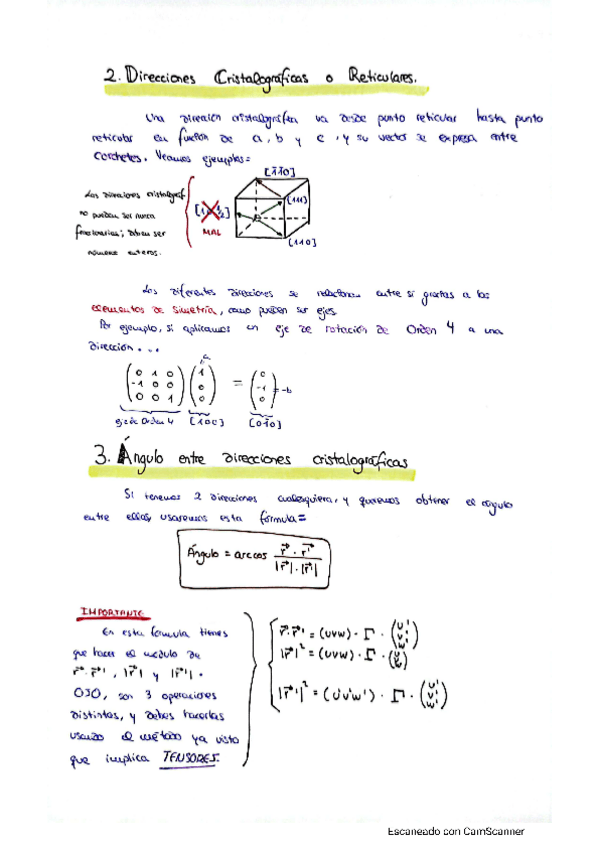 2. Direcciones Cristalográficas o Reticulares.
Una dirección cristalográfica va desde punto reticular hasta punto
reticular en función de a, b y c, y su vector se expresa entre
corchetes. Veamos ejemplos=
[1̄1̄0]
Las direcciones cristalográf
no pueden ser nunca
fraccionarias; deben ser
números enteros.
MAL
[111]
[110]
Las diferentes direcciones se relacionan entre sí gracias a los
elementos de simetría, como pueden ser ejes.
Por ejemplo, si aplicamos un eje de rotación de Orden 4 a una
dirección...
a
(0 1 0) (1) (0)
(-1 0 0) (0) = (-1) = -b
(0 0 1) (0) (0)
eje de Orden 4 [100] [01̄0]
3. Ángulo entre direcciones cristalográficas
Si tenemos 2 direcciones cualesquiera, y queremos obtener el ángulo
entre ellas, usaremos esta fórmula=
Ángulo = arccos r⃗ · r⃗' / |r⃗| · |r⃗'|
IMPORTANTE
En esta fórmula tienes
que hacer el módulo de
r⃗·r⃗', |r⃗| y |r⃗'|.
OJO, son 3 operaciones
distintas, y debes hacerlas
usando el método ya visto
que implica TENSORES.
r⃗·r⃗' = (uvw) · Γ · (u' v' w')
|r⃗|² = (uvw) · Γ · (u v w)
|r⃗'|² = (u'v'w') · Γ · (u' v' w')
Escaneado con CamScanner